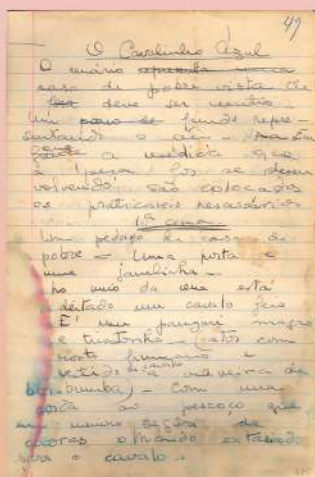 49
O Cavalinho Azul
O cenário apresenta uma
casa de pobre vista de
deve ser neutro.
Um pano de fundo repre-
sentando o céu - Em
a medida que
a peça for se desen
volvendo são colocados
os praticáveis necessários
1ª cena
Um pedaço de casa de
pobre - Uma porta e
uma janelinha -
No meio da cena está
deitado um cavalo feio
É um pangaré magro
e tristonho - (atos com
rosto humano e
vestido de cavalo à maneira de
bumba) - Com uma
corda ao pescoço que
um menino segura de
cócoras olhando extasiado
para o cavalo.